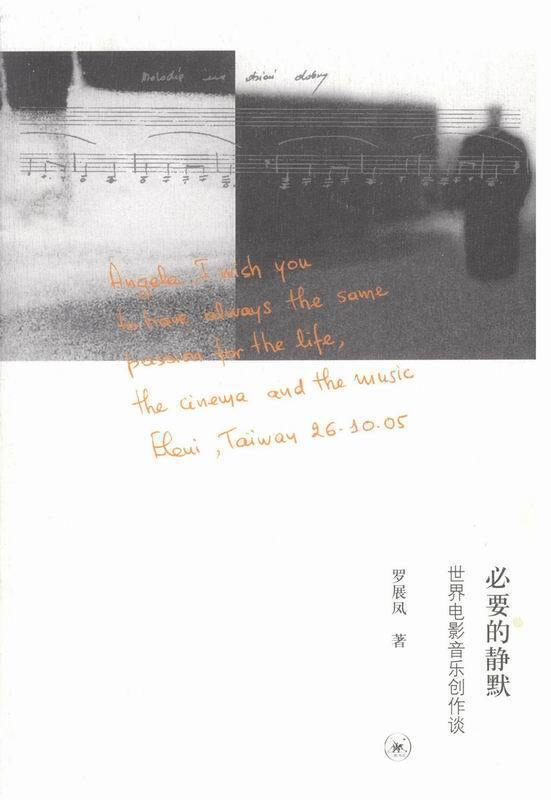 Melodie dobry
Angela, I wish you
to have always the same
passion for the life,
the cinema and the music
Eleni, Taiwan 26-10-05
必要的静默
世界电影音乐创作谈
罗展凤 著